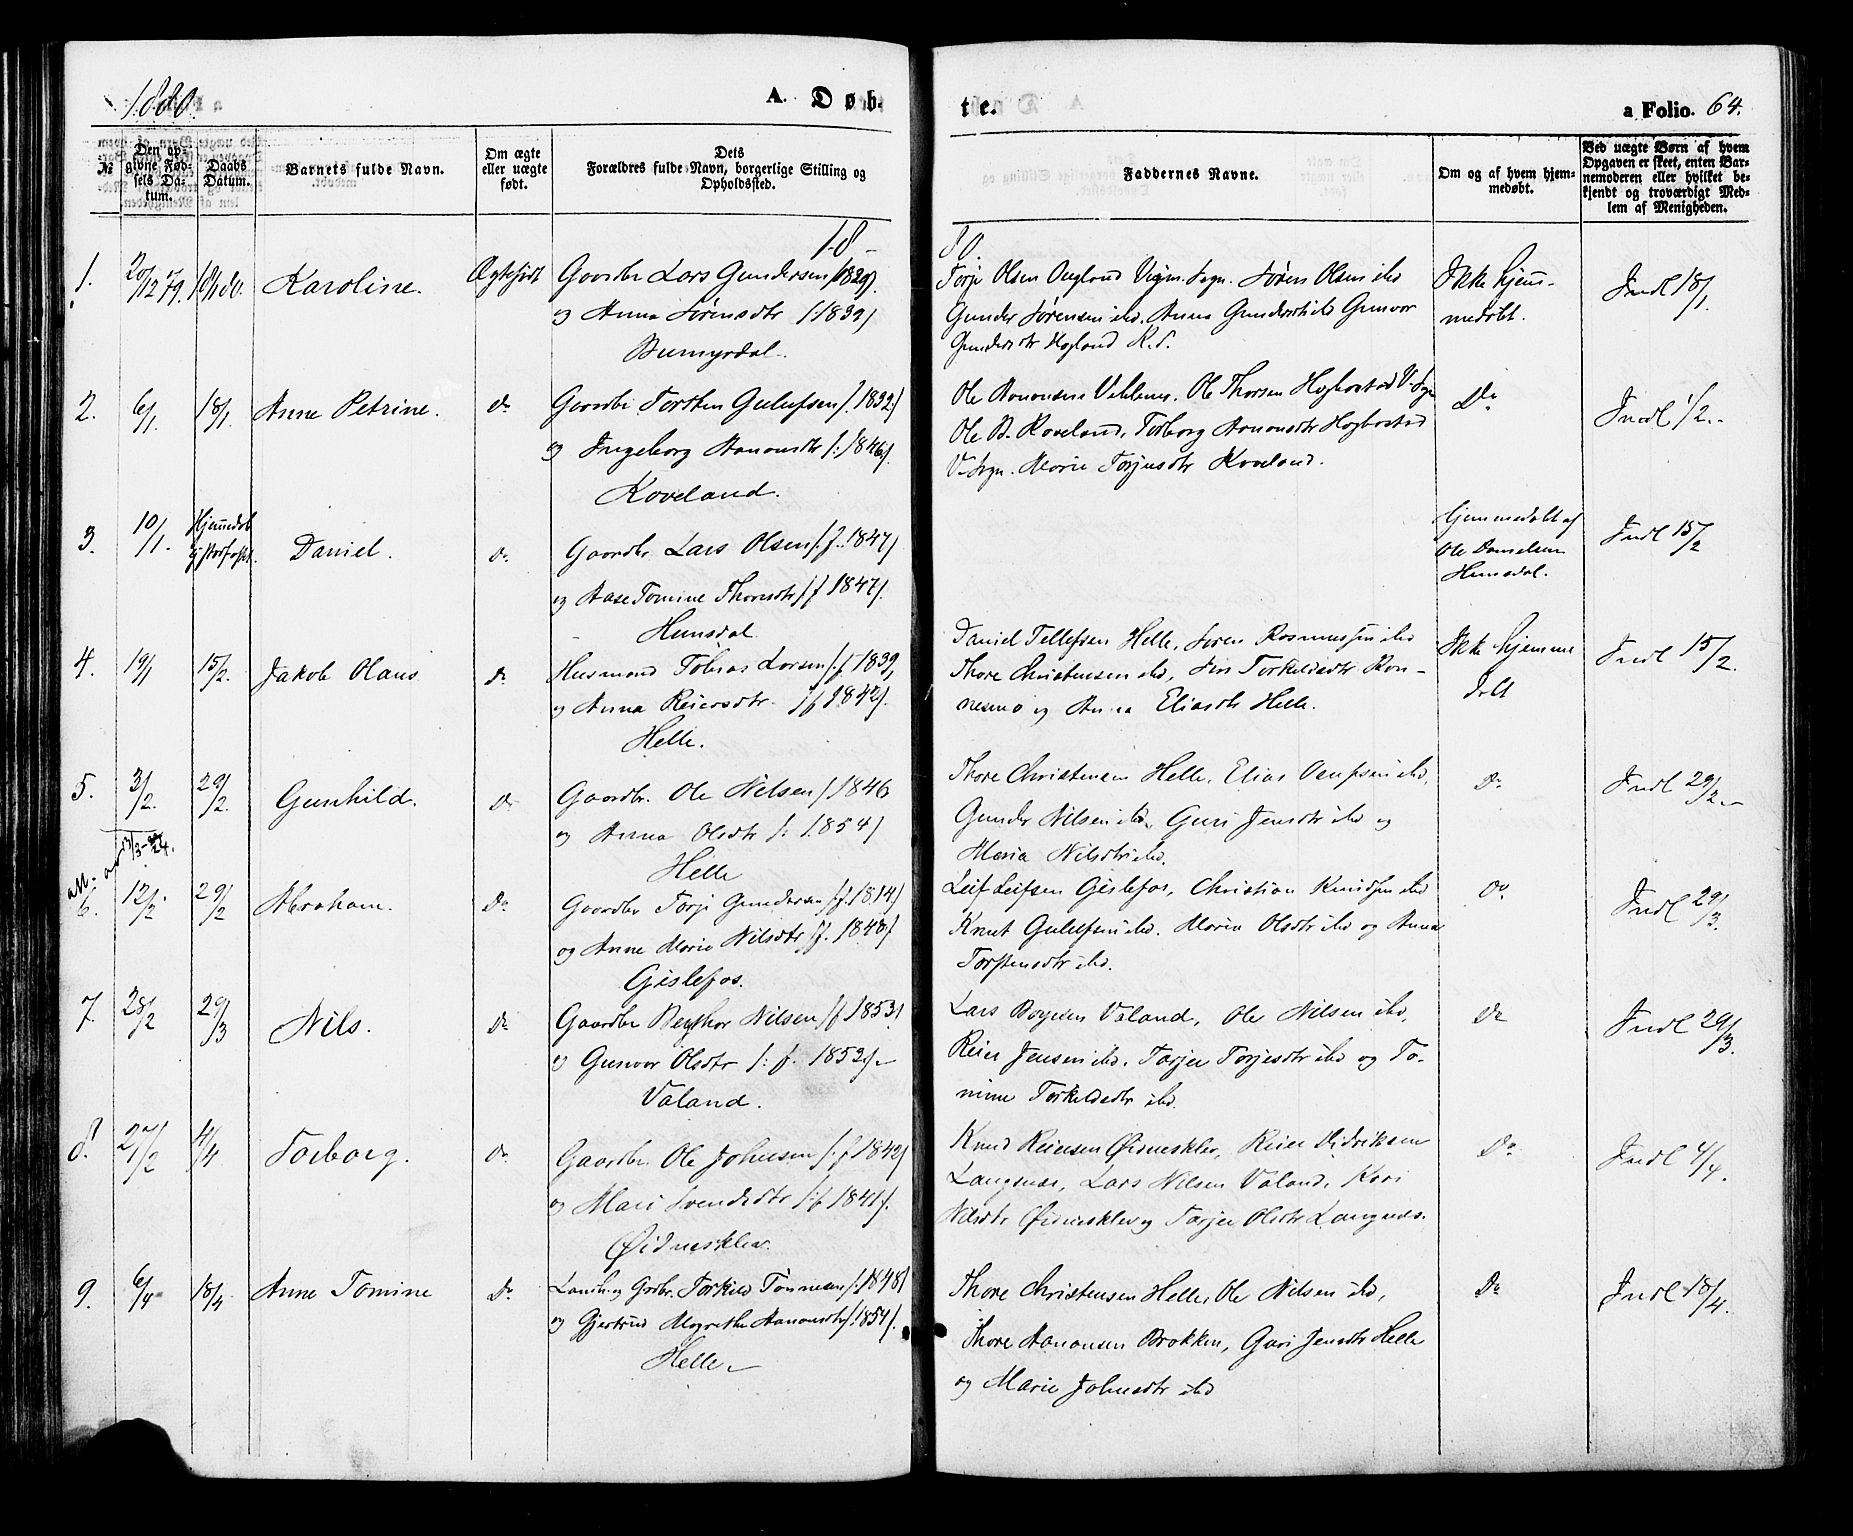 1880.
A. Døb-
te.
a Folio. 64.
№
Den op-
givne Fød-
sels Da-
tum.
Daabs
Datum.
Barnets fulde Navn.
Om ægte
eller uægte
født.
Dets
Forældres fulde Navn, borgerlige Stilling og
Opholdssted.
Faddernes Navne.
Om og af hvem hjem-
medøbt.
Ved uægte Børn af hvem
Opgaven er skeet, enten Bar-
nemoderen eller hvilket be-
kjendt og troværdigt Med-
lem af Menigheden.
18-
80.
1.
20/12 79.
18/1 80.
Karoline.
Ægtefødt
Gaardbr Lars Gundersen
og Anna Sørensdtr
Torje Olsen Vign. Sogn. Søren Olsen ibd
Gunder Sørensen ibd. Anna Gundersdtr ibd Gunvor
Gundersdtr Hogland
Ikke hjem-
medøbt.
Indl 18/1
2.
6/1
18/1
Anne Petrine.
Do
Gaardbr Torsten Gulufsen f. 1832
og Ingeborg Aanonsdtr f. 1846
Koveland.
Ole Aanonsen. Ole Thorsen Høgbostad V. Sogn
Ole B. Koveland, Torborg Aanonsdtr Høgbostad
V. Sogn. Marie Torjusdtr Koveland.
Do
Indl 1/2.
3.
10/1.
Hjemmedøbt
Daniel.
Do
Gaardbr. Lars Olsen f. 1847
og Aase Tomine Thorsdtr f 1847
Hunsdal
hjemmedøbt af
Ole Danielsen
Hunsdal.
Indl 15/2
4.
19/1
15/2.
Jakob Olaus
Do
Husmand Tobias Larsen f. 1839,
og Anna Reiersdtr. f 1842
Helle.
Daniel Tellefsen Helle, Søren Rasmussen ibd
Thore Christensen ibd, Siri Torkildsdtr Røn-
nesmo og Anna Eliasdtr Helle.
Ikke hjemme
døbt
Indl 15/2.
5.
3/2.
29/2.
Gunhild.
Do
Gaardbr. Ole Nilsen f 1846
og Anna Olsdtr f. 1854
Helle
Thore Christensen Helle, Elias ibd,
Gunder Nilsen ibd, Guri Jensdtr ibd og
Maria Nilsdtr ibd.
Do
Indl 29/2.
6.
12/2.
29/2
Abraham.
Do
Gaardbr Torje Gundersen f. 1814
og Anne Marie Nilsdtr f. 1840
Gislefos.
Leif Leifsen Gislefos, Christian Knudsen ibd
Knut Gulufsen ibd. Maria Olsdtr ibd og Anna
Torstensdtr ibd.
Do
Indl 29/3.
7.
28/2
29/3
Nils.
Do
Gaardbr Berthor Nilsen f 1853
og Gunvor Olsdtr f. 1852
Valand.
Lars Valand, Ole Nilsen ibd,
Reier Jensen ibd, Tarjer Torjesdtr ibd og To-
mine Torkildsdtr ibd.
Do
Indl 29/3.
8.
27/2
4/4
Torborg.
Do
Gaardbr. Ole Johnsen f. 1842
og Mari Svendsdtr f 1841
Øidnesklev
Knud Reiersen Øidnesklev, Reier Didriksen
Langenes, Lars Nilsen Valand, Kari
Nilsdtr Øidnesklev og Tarjer Olsdtr Langenes.
Do
Indl 4/4.
9.
6/4
18/4
Anne Tomine
Do
Landh og Grdbr. Torkild Tønnesen f. 1848
og Gjertrud Magrethe Aanonsdtr f. 1854
Helle
Thore Christensen Helle, Ole Nilsen ibd,
Thore Aanonsen Brokken, Guri Jensdtr Helle
og Marie Johnsdtr ibd
Do
Indl 18/4.